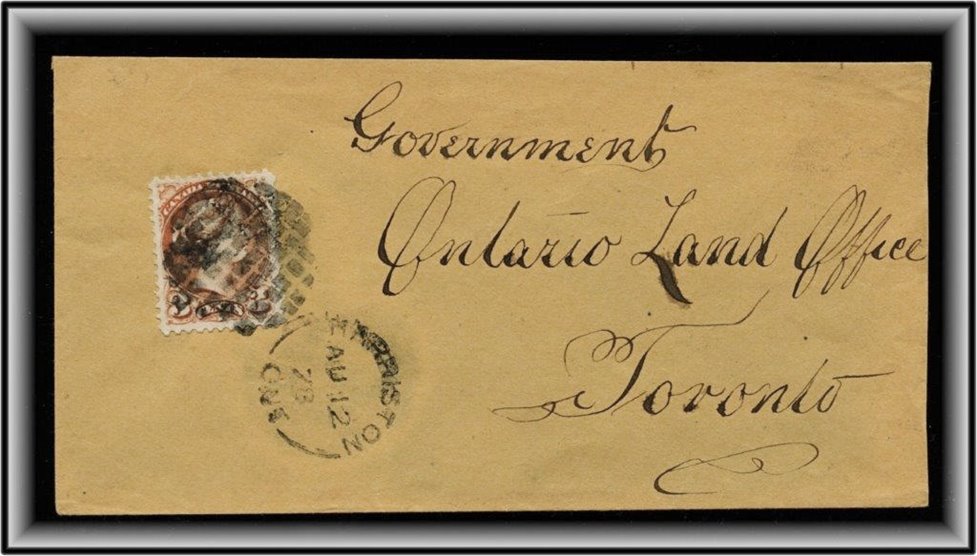 Government
Ontario Land Office
Toronto
CANADA
3 CENTS 3
HARRISTON
AU 12
78
ONT